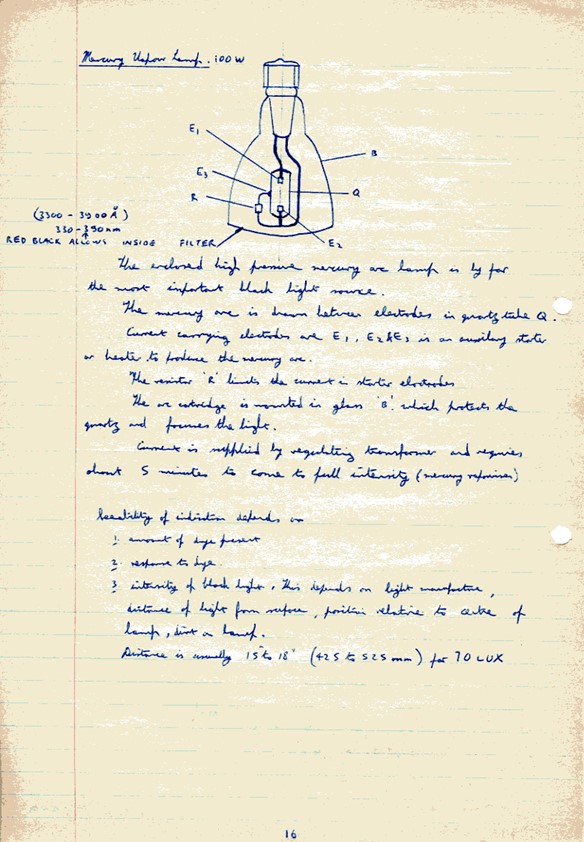 Mercury Vapour Lamp. 100 W
E1
B
E3
Q
R
(3300 - 3900 Å)
330 - 390 nm
RED BLACK ALLOWS INSIDE FILTER
E2
The enclosed high pressure mercury arc lamp is by far
the most important black light source.
The mercury arc is drawn between electrodes in quartz tube Q.
Current carrying electodes are E1, E2 & E3 is an auxiliary starter
or heater to produce the mercury arc.
The resistor 'R' limits the current in starter electrodes
The arc catridge is mounted in glass 'B' which protects the
quartz and focuses the light.
Current is supplied by regulating transformer and requires
about 5 minutes to come to full intensity (mercury vaporises)
of indication depends on
1. amount of dye present
2. response to dye
3. intensity of black light. This depends on light manufacture,
distance of light from surface, position relative to centre of
lamp, dirt on lamp.
Distance is usually 15" to 18" (425 to 525 mm) for 70 LUX
16